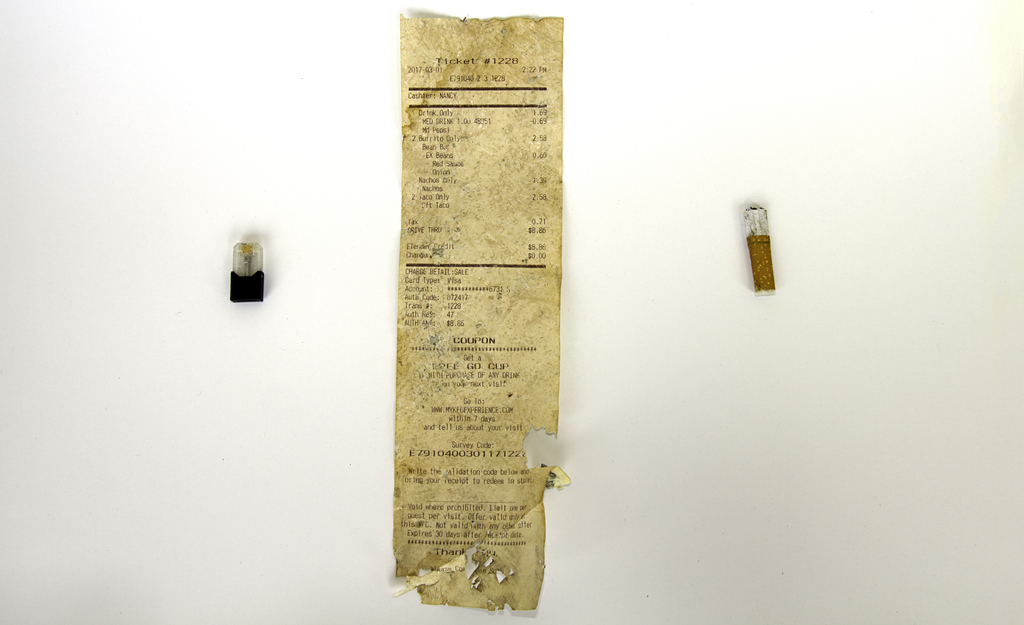 Ticket #1228
2017-03-01 2:22 PM
E791040 2 3 1228
Cashier: NANCY
Drink Only 1.69
MED DRINK 1.00 48351 -0.69
Md Pepsi
2 Burrito Only 2.58
Bean Bur
EX Beans 0.60
Red Sauce
Onion
Nachos Only 1.39
Nachos
2 Taco Only 2.58
Cft Taco
Tax 0.71
DRIVE THRU $8.86
Credit $8.86
Change $0.00
CHARGE DETAIL:SALE
Card Type: Visa
Account: ************6731 S
Auth Code: 072417
Trans #: 1228
Auth Ref: 47
AUTH AMT: $8.86
COUPON
************************************
Get a
FREE GO CUP
WITH PURCHASE OF ANY DRINK
on your next visit
Go to:
WWW.MYKFCEXPERIENCE.COM
within 7 days
and tell us about your visit
Survey Code:
E7910400301171228
Write the validation code below and
bring your receipt to redeem in
Void where prohibited. Limit one per
guest per visit. Offer valid only at
this KFC. Not valid with any other offer
Expires 30 days after receipt date.
************************************
Thank You
Please